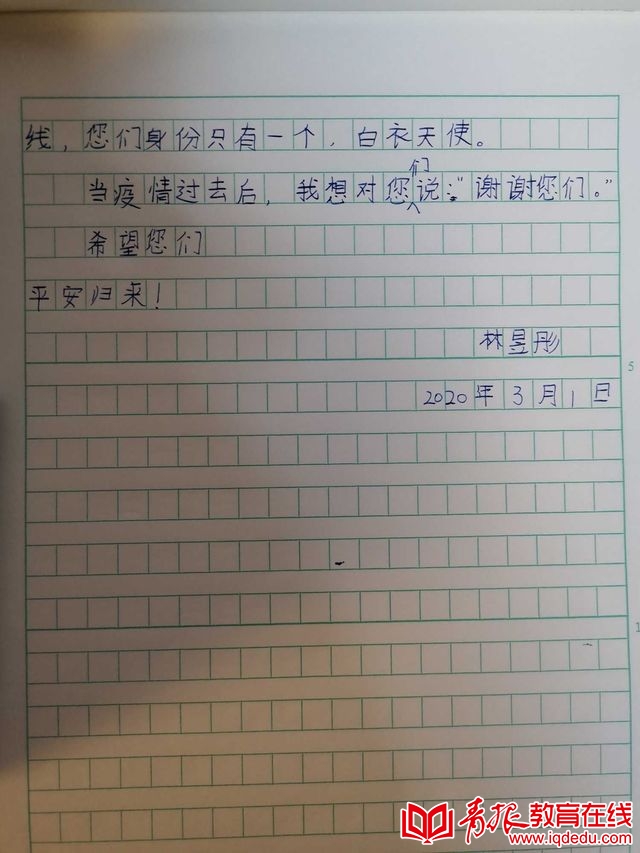 线，您们身份只有一个，白衣天使。
当疫情过去后，我想对您们说：“谢谢您们。”
希望您们
平安归来！
林昱彤
2020年3月1日
5
1
青报教育在线
www.iqdedu.com